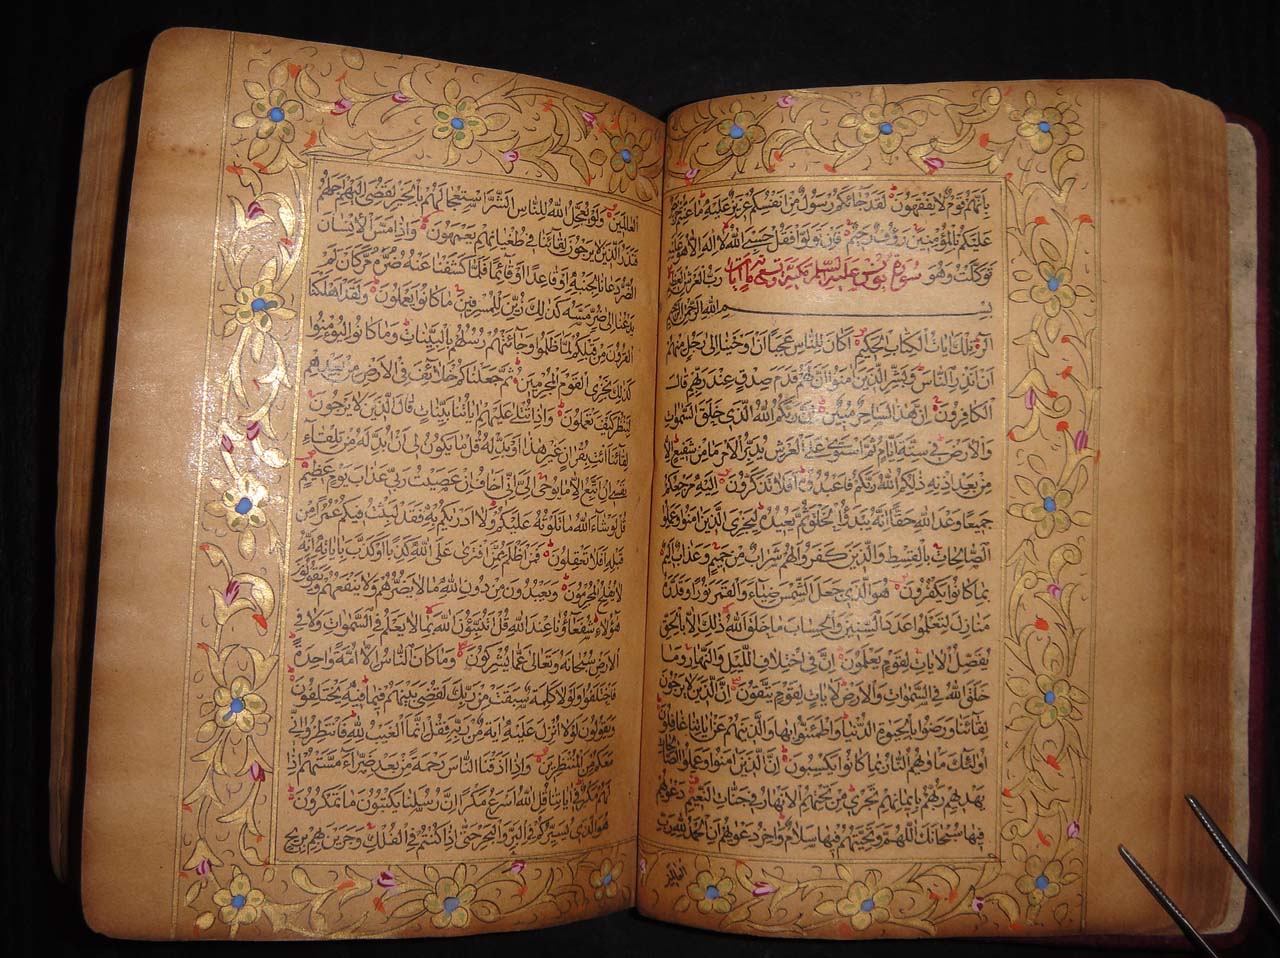 بانهم قوم لا يفقهون لقد جائكم رسول من انفسكم عزيز عليه ما عنتم حريص
عليكم بالمؤمنين رؤف رحيم فان تولوا فقل حسبي الله لا اله الا هو عليه
توكلت وهو رب العرش العظيم سورة يونس عليه السلام مكية وتسع آيات
بسم الله الرحمن الرحيم
الر تلك ايات الكتاب الحكيم اكان للناس عجبا ان اوحينا الى رجل منهم
ان انذر الناس وبشر الذين امنوا ان لهم قدم صدق عند ربهم قال
الكافرون ان هذا لساحر مبين ان ربكم الله الذي خلق السموات
والارض في ستة ايام ثم استوى على العرش يدبر الامر ما من شفيع الا
من بعد اذنه ذلكم الله ربكم فاعبدوه افلا تذكرون اليه مرجعكم
جميعا وعد الله حقا انه يبدؤا الخلق ثم يعيده ليجزي الذين امنوا وعملوا
الصالحات بالقسط والذين كفروا لهم شراب من حميم وعذاب اليم
بما كانوا يكفرون هو الذي جعل الشمس ضياء والقمر نورا وقدره
منازل لتعلموا عدد السنين والحساب ما خلق الله ذلك الا بالحق
يفصل الايات لقوم يعلمون ان في اختلاف الليل والنهار وما
خلق الله في السموات والارض لايات لقوم يتقون ان الذين لا يرجون
لقاءنا ورضوا بالحيوة الدنيا واطمئنوا بها والذين هم عن اياتنا غافلون
اولئك ماويهم النار بما كانوا يكسبون ان الذين امنوا وعملوا الصالحات
يهديهم ربهم بايمانهم تجري من تحتهم الانهار في جنات النعيم دعويهم
فيها سبحانك اللهم وتحيتهم فيها سلام واخر دعويهم ان الحمد لله رب
العالمين
العالمين ولو يعجل الله للناس الشر استعجالهم بالخير لقضي اليهم اجلهم
فنذر الذين لا يرجون لقاءنا في طغيانهم يعمهون واذا مس الانسان
الضر دعانا لجنبه او قاعدا او قائما فلما كشفنا عنه ضره مر كان لم
يدعنا الى ضر مسه كذلك زين للمسرفين ما كانوا يعملون ولقد اهلكنا
القرون من قبلكم لما ظلموا وجائتهم رسلهم بالبينات وما كانوا ليؤمنوا
كذلك نجزي القوم المجرمين ثم جعلناكم خلائف في الارض من بعدهم
لننظر كيف تعملون واذا تتلى عليهم اياتنا بينات قال الذين لا يرجون
لقائنا ائت بقران غير هذا او بدله قل ما يكون لي ان ابدله من تلقاء
نفسي ان اتبع الا ما يوحى الي اني اخاف ان عصيت ربي عذاب يوم عظيم
قل لو شاء الله ما تلوته عليكم ولا ادريكم به فقد لبثت فيكم عمرا من
قبله افلا تعقلون فمن اظلم ممن افترى على الله كذبا او كذب باياته انه
لا يفلح المجرمون ويعبدون من دون الله ما لا يضرهم ولا ينفعهم ويقولون
هؤلاء شفعاؤنا عند الله قل اتنبئون الله بما لا يعلم في السموات ولا في
الارض سبحانه وتعالى عما يشركون وما كان الناس الا امة واحدة
فاختلفوا ولولا كلمة سبقت من ربك لقضي بينهم فيما فيه يختلفون
ويقولون لولا انزل عليه اية من ربه فقل انما الغيب لله فانتظروا اني
معكم من المنتظرين واذا اذقنا الناس رحمة من بعد ضراء مستهم اذا
لهم مكر في اياتنا قل الله اسرع مكرا ان رسلنا يكتبون ما تمكرون
هو الذي يسيركم في البر والبحر حتى اذا كنتم في الفلك وجرين بهم بريح